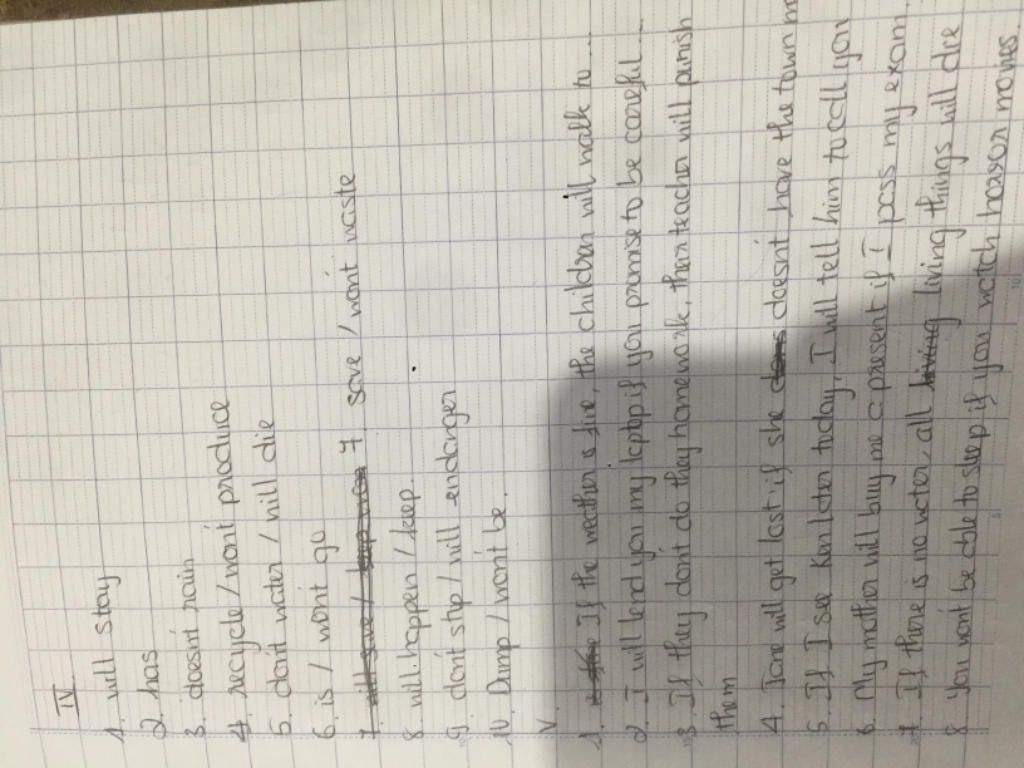 IV
1. will stay
2. has
3. doesn't rain
4. recycle / won't produce
5. don't water / will die
6. is / won't go
7. 7. save / won't waste
8. will happen / keep
9. don't stop / will endanger
10. Dump / won't be
V.
1. If the weather is fine, the children will walk to ...
2. I will lend you my laptop if you promise to be careful ...
3. If they don't do they homework, their teacher will punish
them
4. Jane will get lost if she doesn't have the town m
5. If I see Ken later today, I will tell him to call you
6. My mother will buy me a present if I pass my exam.
7. If there is no water, all living things will die
8. You won't be able to sleep if you watch horror movies